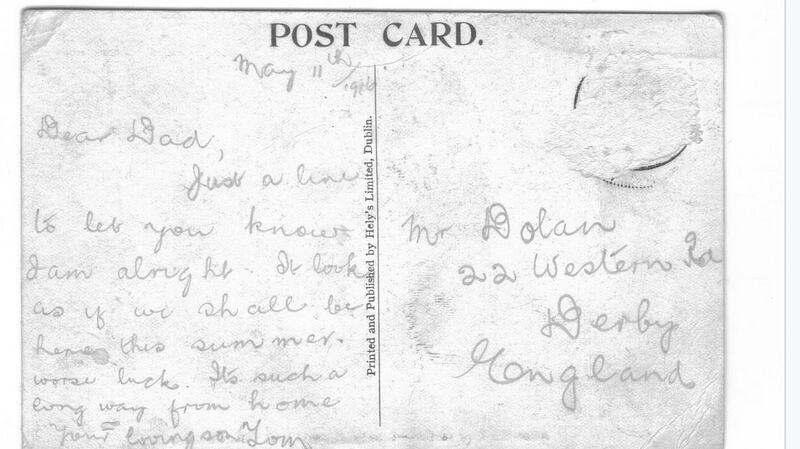 POST CARD.
May 11th 1916
Dear Dad,
Just a line
to let you know
I am alright. It look
as if we shall be
here this summer.
worse luck. Its such a
long way from home
Your loving son Tom
Printed and Published by Hely's Limited, Dublin.
Mr Dolan
22 Western Rd
Derby
England